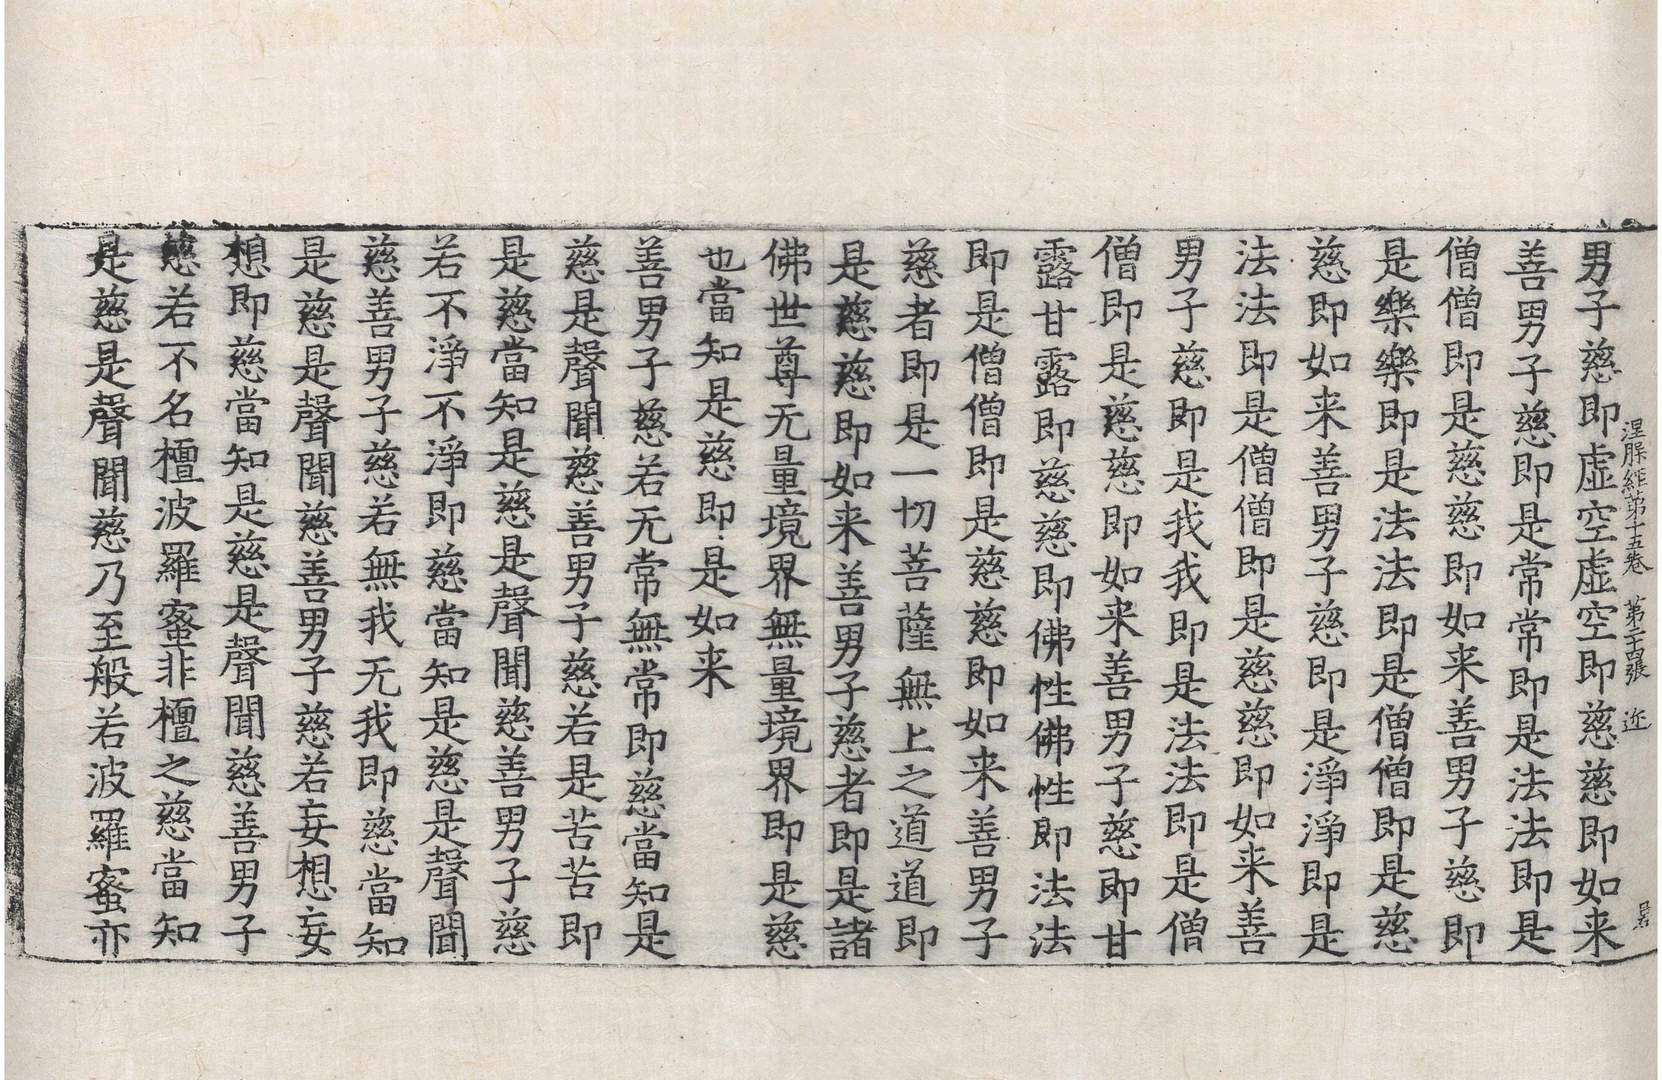 涅槃經第十五卷 第二十四張 迩
男子慈即虛空虛空即慈慈即如来
善男子慈即是常常即是法法即是
僧僧即是慈慈即如来善男子慈即
是樂樂即是法法即是僧僧即是慈
慈即如来善男子慈即是淨淨即是
法法即是僧僧即是慈慈即如来善
男子慈即是我我即是法法即是僧
僧即是慈慈即如来善男子慈即甘
露甘露即慈慈即佛性佛性即法法
即是僧僧即是慈慈即如来善男子
慈者即是一切菩薩無上之道道即
是慈慈即如来善男子慈者即是諸
佛世尊无量境界無量境界即是慈
也當知是慈即是如来
善男子慈若无常無常即慈當知是
慈是聲聞慈善男子慈若是苦苦即
是慈當知是慈是聲聞慈善男子慈
若不淨不淨即慈當知是慈是聲聞
慈善男子慈若無我无我即慈當知
是慈是聲聞慈善男子慈若妄想妄
想即慈當知是慈是聲聞慈善男子
慈若不名檀波羅蜜非檀之慈當知
是慈是聲聞慈乃至般若波羅蜜亦